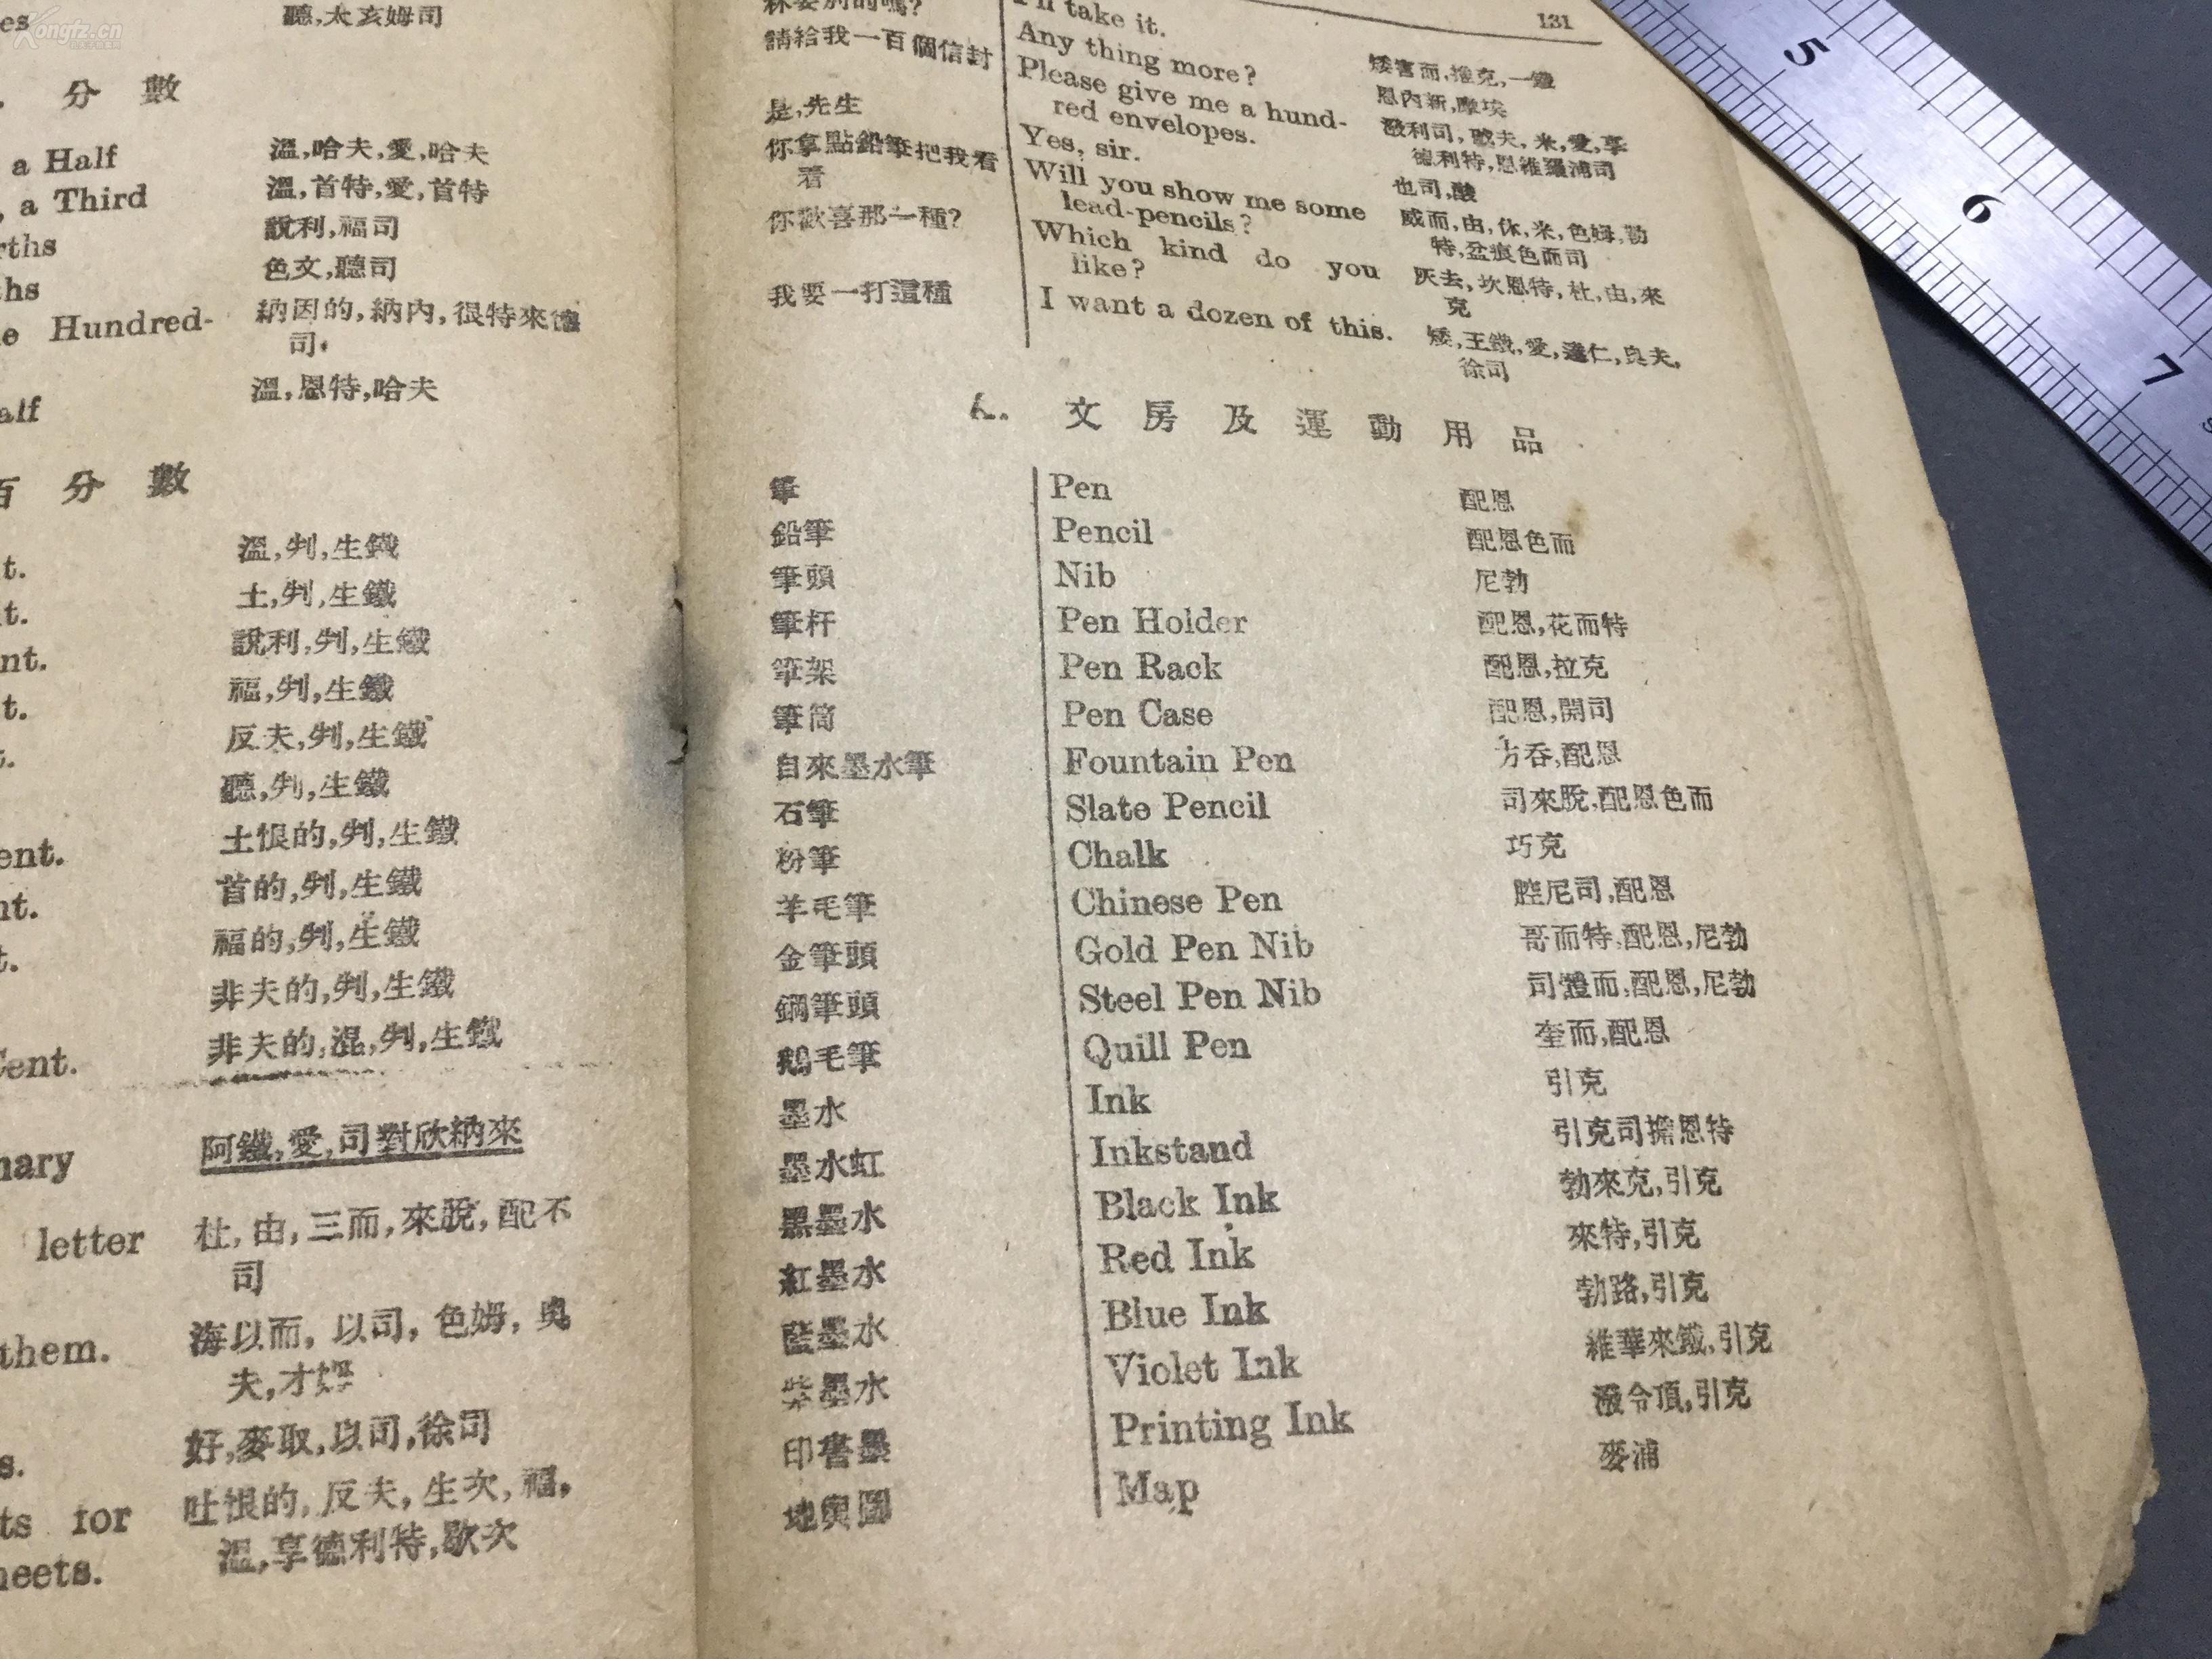 Kongfz.cn
es 聽,太亥姆司
分數
a Half 溫,哈夫,愛,哈夫
, a Third 溫,首特,愛,首特
rths 說利,福司
hs 色文,聽司
e Hundred- 納因的,納內,很特來德
司.
alf 溫,恩特,哈夫
百分數
t. 溫,判,生鐵
t. 土,判,生鐵
nt. 說利,判,生鐵
t. 福,判,生鐵
t. 反夫,判,生鐵
聽,判,生鐵
ent. 土恨的,判,生鐵
nt. 首的,判,生鐵
t. 福的,判,生鐵
非夫的,判,生鐵
Cent. 非夫的,混,判,生鐵
nary 阿鐵,愛,司對欣納來
letter 杜,由,三而,來脫,配不
司
them. 海以而,以司,色姆,奥
夫,才姆
s. 好,麥取,以司,徐司
ts for 吐恨的,反夫,生次,福,
heets. 溫,享德利特,歇次
131
I'll take it. 矮害而,推克,一鐵
Any thing more? 恩內新,摩埃
請給我一百個信封 Please give me a hund- 潑利司,歇夫,米,愛,享
red envelopes. 德利特,恩維羅浦司
是,先生 Yes, sir. 也司,酸
你拿點鉛筆把我看 Will you show me some 威而,由,休,米,色姆,勒
看 lead-pencils? 特,盆痕色而司
你歡喜那一種? Which kind do you 灰去,坎恩特,杜,由,來
like? 克
我要一打這種 I want a dozen of this. 矮,王鐵,愛,達仁,奥夫,
徐司
文房及運動用品
筆 Pen 配恩
鉛筆 Pencil 配恩色而
筆頭 Nib 尼勃
筆杆 Pen Holder 配恩,花而特
筆架 Pen Rack 配恩,拉克
筆筒 Pen Case 配恩,開司
自來墨水筆 Fountain Pen 方吞,配恩
石筆 Slate Pencil 司來脫,配恩色而
粉筆 Chalk 巧克
羊毛筆 Chinese Pen 腔尼司,配恩
金筆頭 Gold Pen Nib 哥而特,配恩,尼勃
鋼筆頭 Steel Pen Nib 司體而,配恩,尼勃
鵝毛筆 Quill Pen 奎而,配恩
墨水 Ink 引克
墨水缸 Inkstand 引克司擔恩特
黑墨水 Black Ink 勃來克,引克
紅墨水 Red Ink 來特,引克
藍墨水 Blue Ink 勃路,引克
紫墨水 Violet Ink 維華來鐵,引克
印書墨 Printing Ink 潑令頂,引克
地輿圖 Map 麥浦